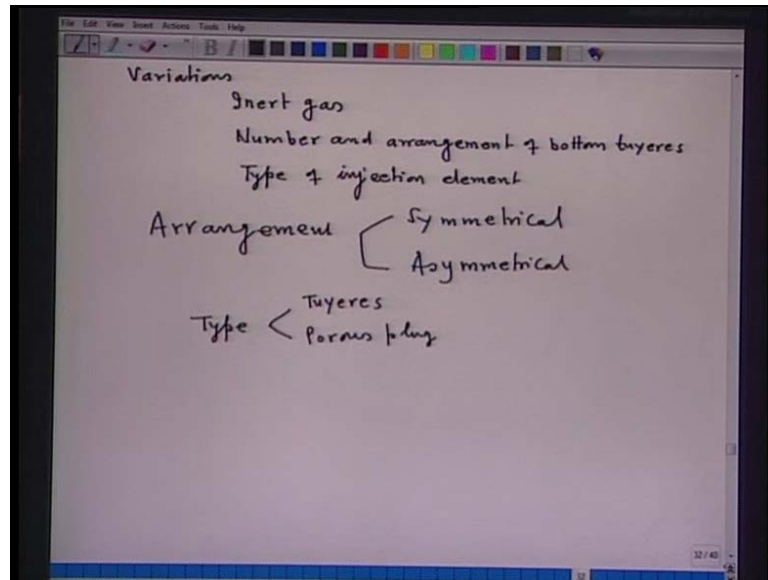 File Edit View Insert Actions Tools Help
B I
Variations
Inert gas
Number and arrangement of bottom tuyeres
Type of injection element
Arrangement Symmetrical
Asymmetrical
Type Tuyeres
Porous plug
32/40
32